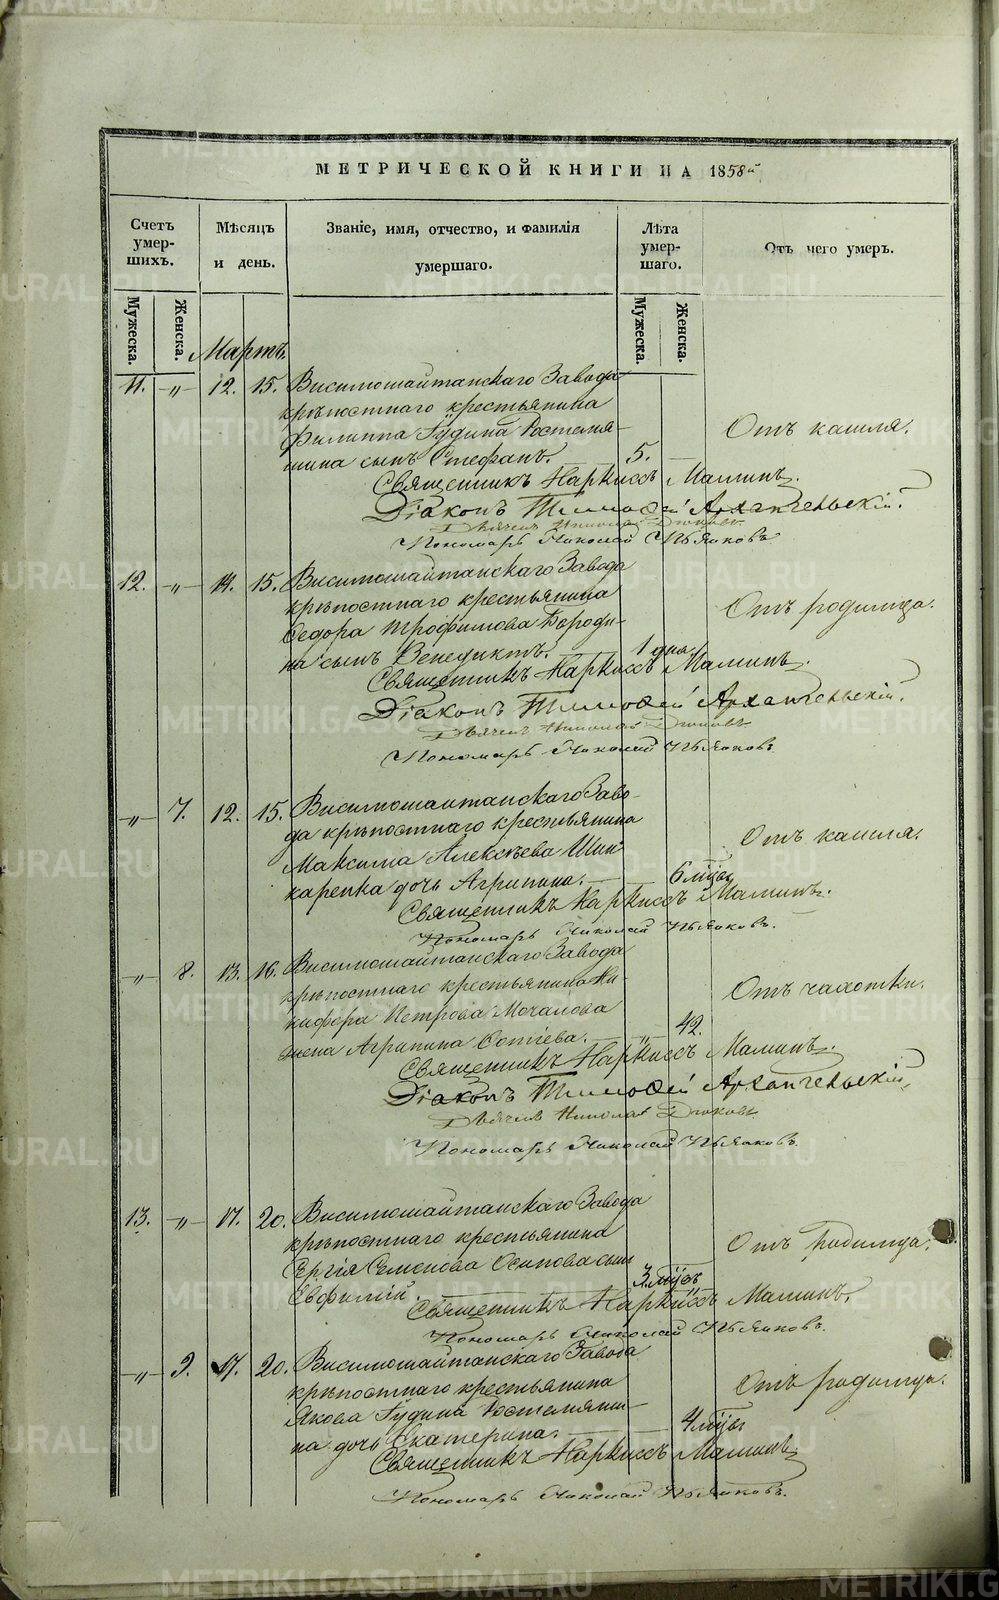 МЕТРИЧЕСКОЙ КНИГИ НА 1858й
Счетъ умершихъ.
Мѣсяцъ и день.
Званіе, имя, отчество, и фамилія умершаго.
Лѣта умершаго.
Отъ чего умеръ.
Мужеска. Женска. Мужеска. Женска.
Мартъ.
11. „ 12. 15. Висимошайтанскаго Завода
крѣпостнаго крестьянина
Филиппа Гудина Ростемя-
шина сынъ Стефанъ. 5. Отъ кашля.
Священникъ Наркиссъ Маминъ.
Діаконъ Тимофей Архангельскій.
Дьячекъ Николай
Пономарь Николай Пьянковъ
12. „ 14. 15. Висимошайтанскаго Завода
крѣпостнаго крестьянина
Ѳедора Трофимова Бороди-
на сынъ Венедиктъ. 1 дня. Отъ родимца.
Священникъ Наркиссъ Маминъ.
Діаконъ Тимофей Архангельскій.
Дьячекъ Николай
Пономарь Николай Пьянковъ
„ 7. 12. 15. Висимошайтанскаго Заво-
да крѣпостнаго крестьянина
Максима Алексѣева Шин-
каренка дочь Агрипина. 6 мѣсяц. Отъ кашля.
Священникъ Наркиссъ Маминъ.
Пономарь Николай Пьянковъ.
„ 8. 13. 16. Висимошайтанскаго Завода
крѣпостнаго крестьянина Ни-
кифора Петрова Мочалова
жена Агрипина Сотіева. „ 42. Отъ чахотки.
Священникъ Наркиссъ Маминъ.
Діаконъ Тимофей Архангельскій,
Дьячекъ Николай
Пономарь Николай Пьянковъ.
13. „ 17. 20. Висимошайтанскаго Завода
крѣпостнаго крестьянина
Сергія Семенова Осипова сынъ
Евфимій. 3 мѣс. Отъ родимца.
Священникъ Наркиссъ Маминъ.
Пономарь Николай Пьянковъ.
„ 9. 17. 20. Висимошайтанскаго Завода
крѣпостнаго крестьянина
Якова Гудина Ростемяши-
на дочь Екатерина. 4 мѣс. Отъ родимца.
Священникъ Наркиссъ Маминъ.
Пономарь Николай Пьянковъ.
METRIKI.GASO-URAL.RU